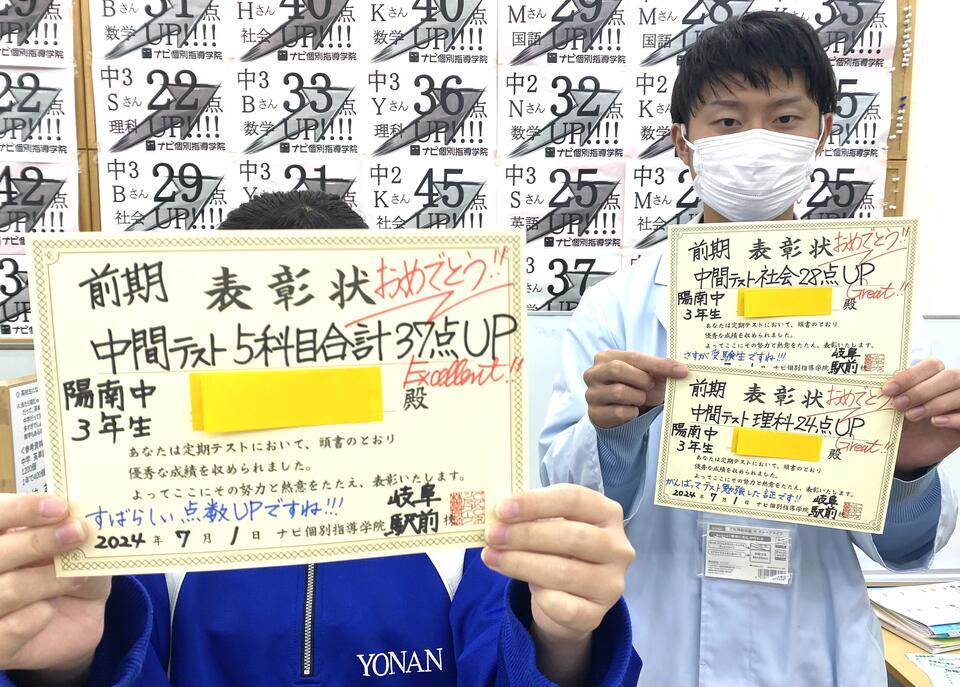 B さん 31 点 UP!!!!
数学 ナビ個別指導学院
H さん 40 点 UP!!!!
社会 ナビ個別指導学院
K さん 40 点 UP!!!!
数学 ナビ個別指導学院
M さん 29 点 UP!!!!
国語 ナビ個別指導学院
M さん 28 点 UP!!!!
国語 ナビ個別指導学院
35 点 UP!!!!
ナビ個別指導学院
22 点
UP!!!!
ナビ個別指導学院
中3
S さん 22 点
理科 UP!!!!
ナビ個別指導学院
中3
B さん 33 点
数学 UP!!!!
ナビ個別指導学院
中3
Y さん 36 点
理科 UP!!!!
ナビ個別指導学院
中2
N さん 32 点
数学 UP!!!!
ナビ個別指導学院
中2
K さん
42 点
UP!!!!
中3
B さん 29 点
社会 UP!!!!
中3
21 点
中2
K さん 45 点
社会 UP!!!!
ナビ個別指導学院
中3
S さん 25 点
英語 UP!!!!
ナビ個別指導学院
中3
M さん
社会
37
前期 表彰状 おめでとう!!
中間テスト 5科目合計 37点UP
Excellent!!
陽南中
3年生 殿
あなたは定期テストにおいて、頭書のとおり
優秀な成績を収められました。
よってここにその努力と熱意をたたえ、表彰いたします。
すばらしい点数UPですね!!!
2024年 7月 1日 ナビ個別指導学院 岐阜駅前校
YONAN
前期 表彰状 おめでとう!!
中間テスト 社会 28点UP
Great!!
陽南中
3年生 殿
あなたは定期テストにおいて、頭書のとおり
優秀な成績を収められました。
よってここにその努力と熱意をたたえ、表彰いたします。
さすが受験生ですね!!!
ナビ個別指導学院 岐阜駅前校
前期 表彰状 おめでとう!!
中間テスト 理科 24点UP
Great!!
陽南中
3年生 殿
あなたは定期テストにおいて、頭書のとおり
優秀な成績を収められました。
よってここにその努力と熱意をたたえ、表彰いたします。
がんばってテスト勉強した証です!!
2024年 7月 1日 ナビ個別指導学院 岐阜駅前校